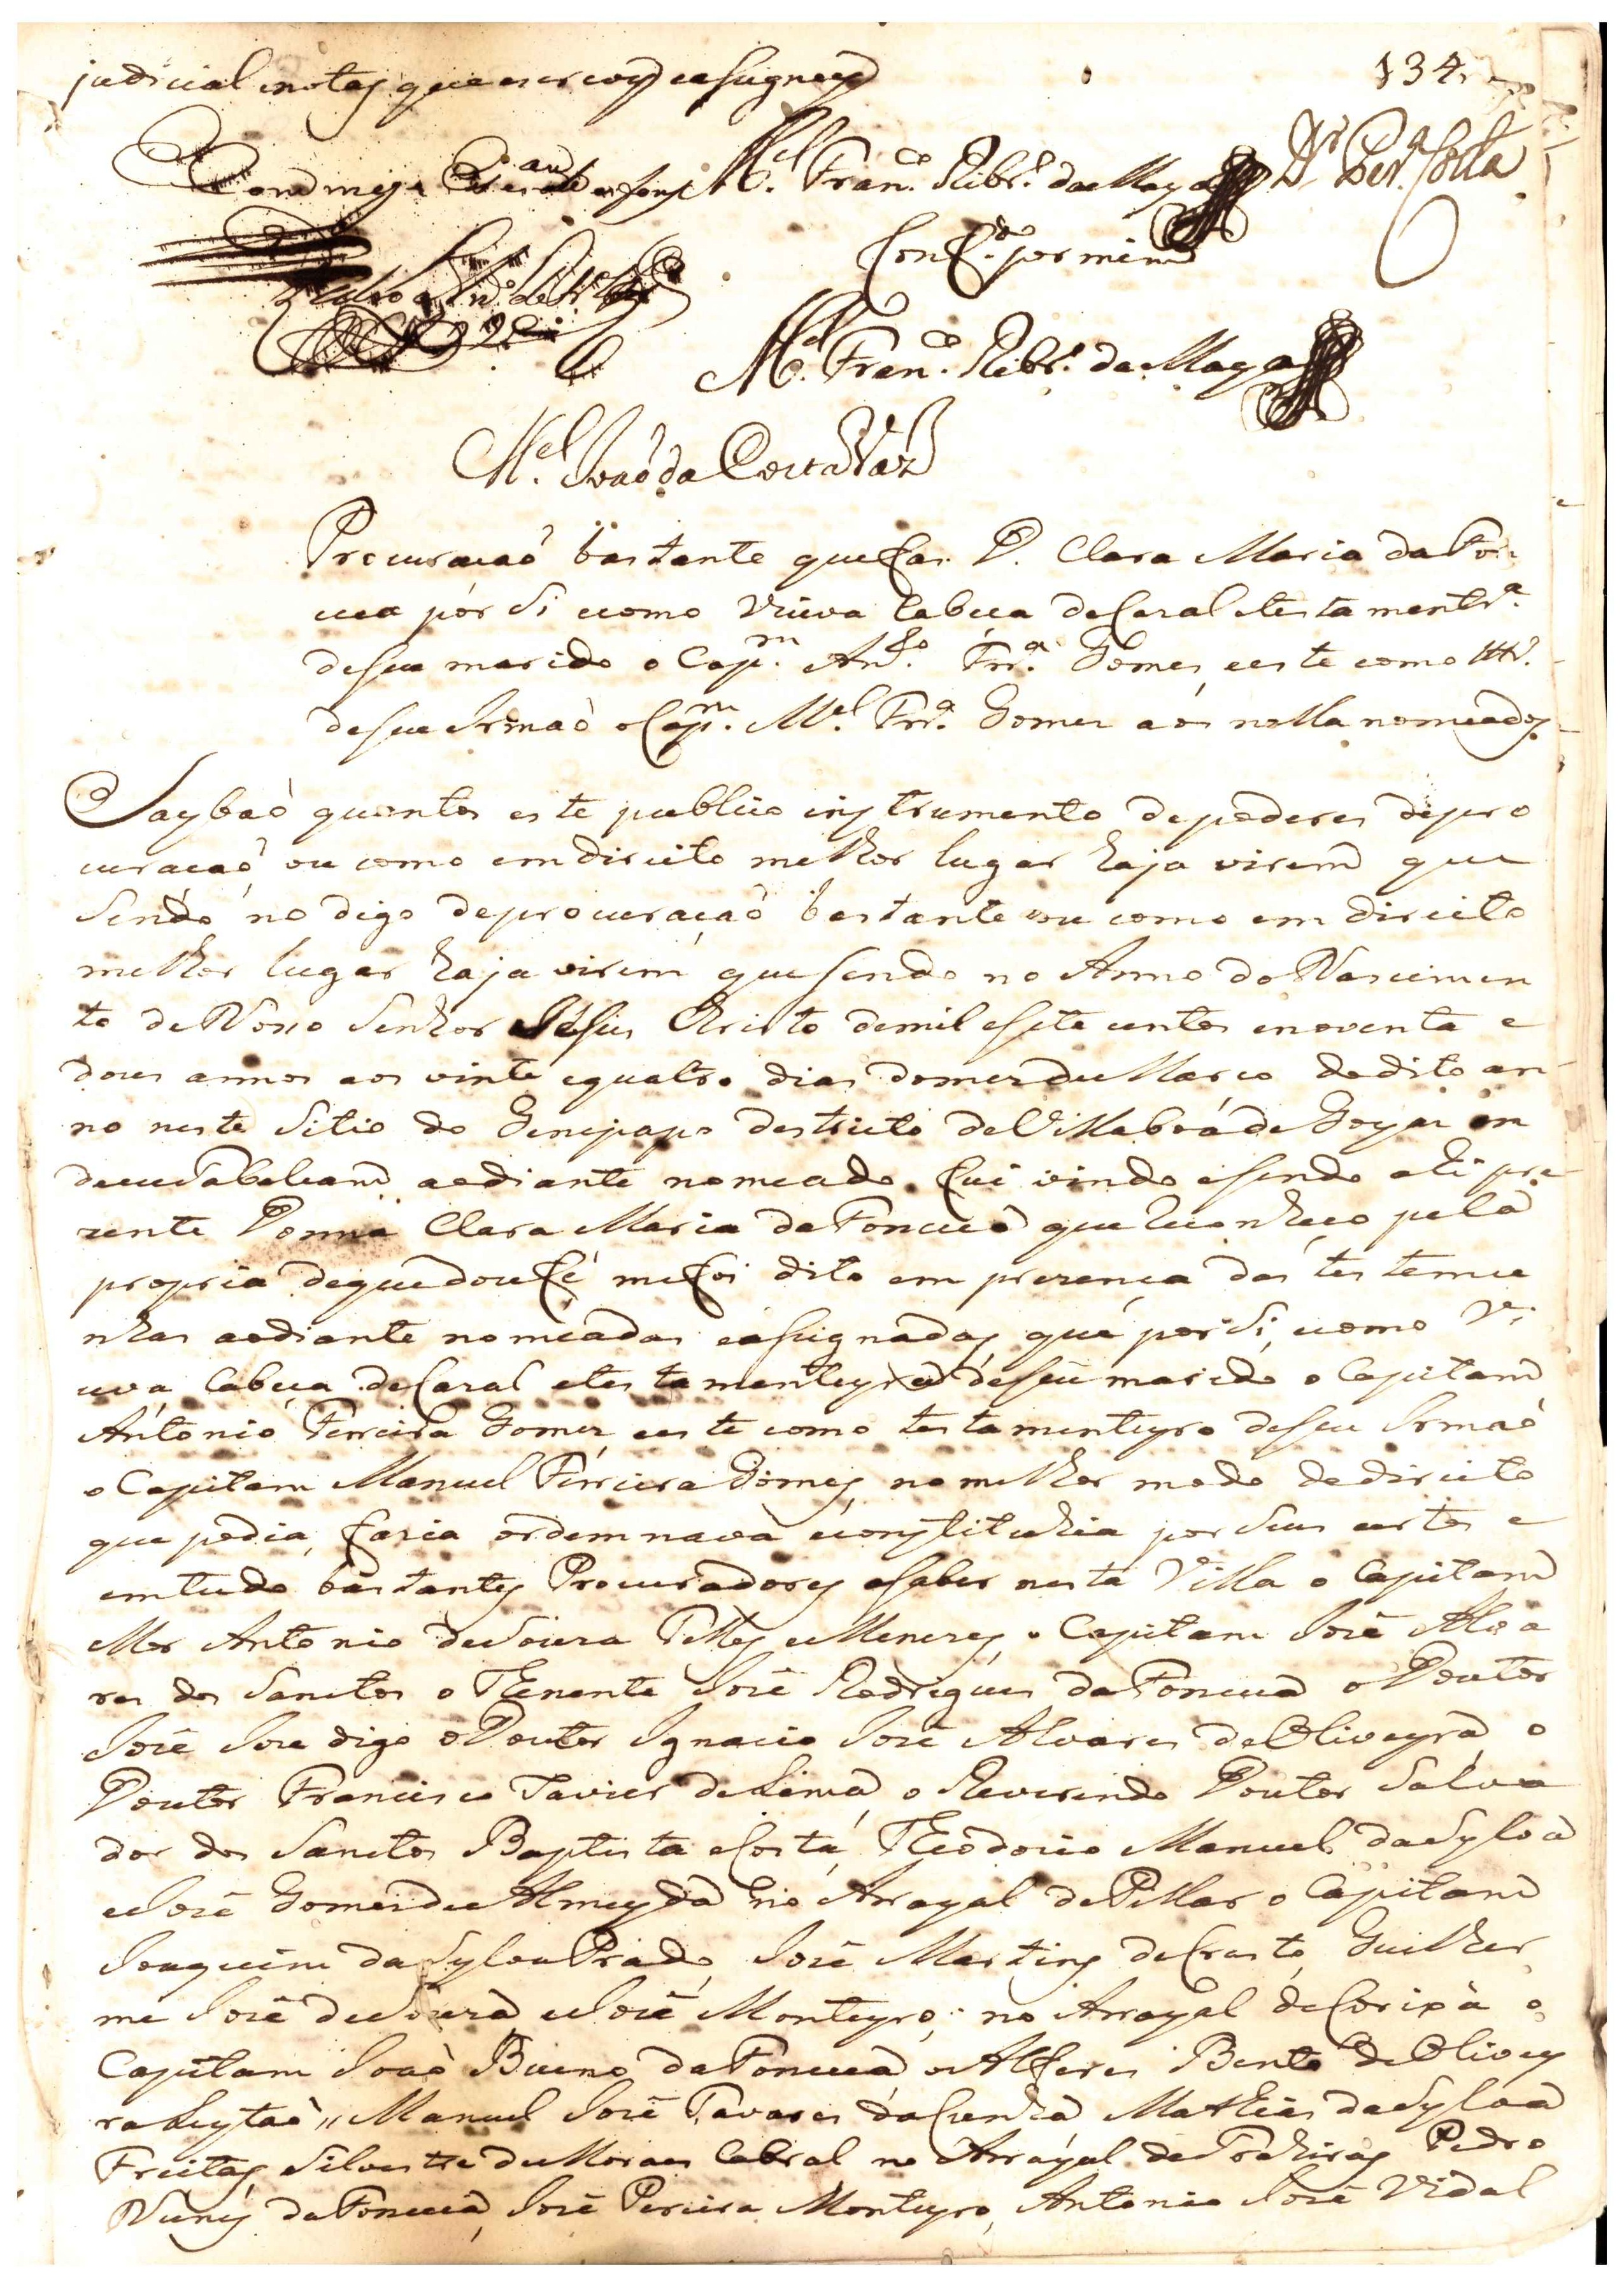 judicial e notas que escrevy e asigney
134
M.el Fran.co Ribr.o da Maya
Conf.do por mim
M.el Fran.co Ribr.o da Maya
M.el Joaõ da Costa Vaz
Procuraçaõ bastante que fas D. Clara Maria da Fon
ceca por si e como viuva cabeca de Casal e testamentr.a
de seu marido o Cap.m An.to Frr.a Gomes, e este como
de seu Irmaõ o Cap.m M.el Frr.a Gomes aos nella nomeados
Saybaõ quantos este publico instrumento de poderes de pro
curacaõ ou como em direito melhor lugar haja virem que
sendo no digo de procuraçaõ bastante ou como em direito
melhor lugar haja virem que sendo no Anno do Nascimen
to de Noso Senhor Jesus Christo de mil e sete centos e noventa e
dous annos aos vinte e quatro dias do mes de Março do dito an
no neste Sitio do Genipapo destricto de Villa boa de Goyas on
de eu Tabaleam aodiante nomeado fui vindo e sendo ahi pre
zente Donna Clara Maria da Fonceca que reconheço pela
propria de que dou fé me foi dito em prezença das testemu
nhas aodiante nomeadas e asignadas que por si, e como Vi
uva, Cabeca de Casal e testamenteyra de seu marido o Capitam
Antonio Ferreira Gomes e este como testamenteyro de seu Irmaõ
o Capitam Manuel Ferreira Gomes, no melhor modo de direito
que podia, fazia ordemnava e constituhia por seus certos e
em tudo bastantes Procuradores a saber nesta Villa o Capitam
Mor Antonio de Souza Telles e Menezes, o Capitam José Alva
res dos Sanctos o Thenente José Rodrigues da Fonceca o Doutor
José Joze digo o Doutor Ignacio José Alvares de Oliveyra o
Doutor Francisco Xavier de Lima o Reverendo Doutor Salva
dor dos Sanctos Baptista e Costa, Theodorio Manuel da Sylva
e José Gomes de Almeyda no Arrayal de Pillar o Capitam
Joaquim da Sylva Prado José Martins de Crasto, Guilher
me José de Souza e José Monteyro; no Arrayal de Corixá o
Capitam Joaõ Bueno da Fonceca o Alferes Bento de Olivey
ra Leytaõ,, Manuel José Tavares da Cunha Mathias da Sylva
Freitas Silvestre de Moraes Cabral no Arrayal de Trahiras Pedro
Nunes da Fonceca, José Pereira Monteyro, Antonio José Vidal